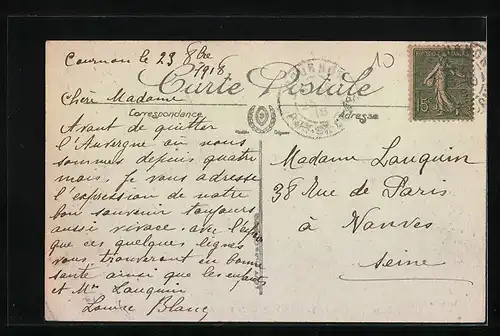 Cournon le 23 8bre
1918
Carte Postale
Chère Madame
Correspondance
Adresse
Avant de quitter
l'Auvergne où nous
sommes depuis quatre
mois, je vous adresse
l'expression de notre
bon souvenir toujours
aussi vivace avec l'espoir
que ces quelques lignes
vous trouveront en bonne
santé ainsi que les enfants
et Mr Lauquin
Louise Blanc
10
15
Madame Lauquin
38 Rue de Paris
à Vanves
Seine